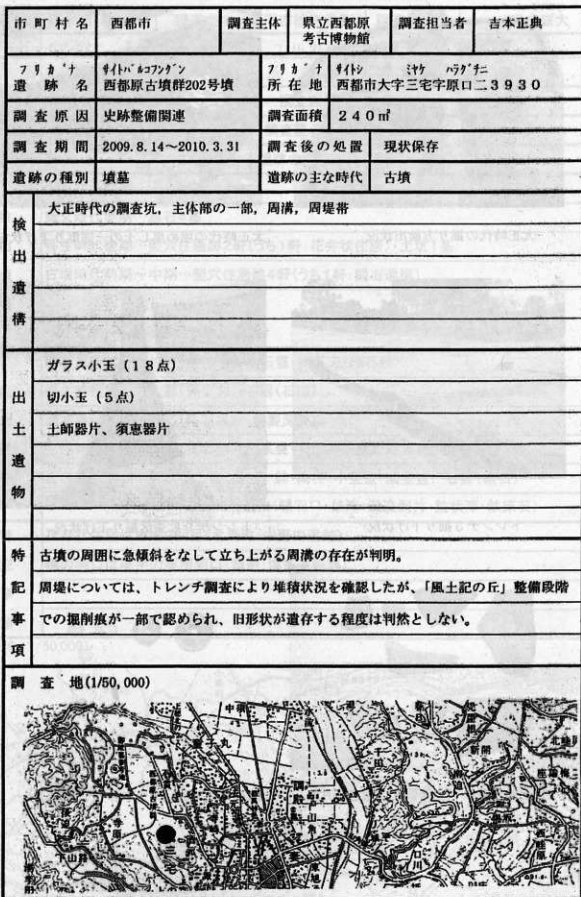 市町村名 西都市 調査主体 県立西都原考古博物館 調査担当者 吉本正典
フリガナ サイトバルコフングン フリガナ サイトシ ミヤケ ハラグチニ
遺跡名 西都原古墳群202号墳 所在地 西都市大字三宅字原口二3930
調査原因 史跡整備関連 調査面積 240㎡
調査期間 2009.8.14～2010.3.31 調査後の処置 現状保存
遺跡の種別 墳墓 遺跡の主な時代 古墳
検出遺構
大正時代の調査坑，主体部の一部，周溝，周堤帯
出土遺物
ガラス小玉（18点）
切小玉（5点）
土師器片、須恵器片
特記事項
古墳の周囲に急傾斜をなして立ち上がる周溝の存在が判明。
周堤については、トレンチ調査により堆積状況を確認したが、「風土記の丘」整備段階
での掘削痕が一部で認められ、旧形状が遺存する程度は判然としない。
調査地(1/50,000)
三宅
下山路
寺原
新開